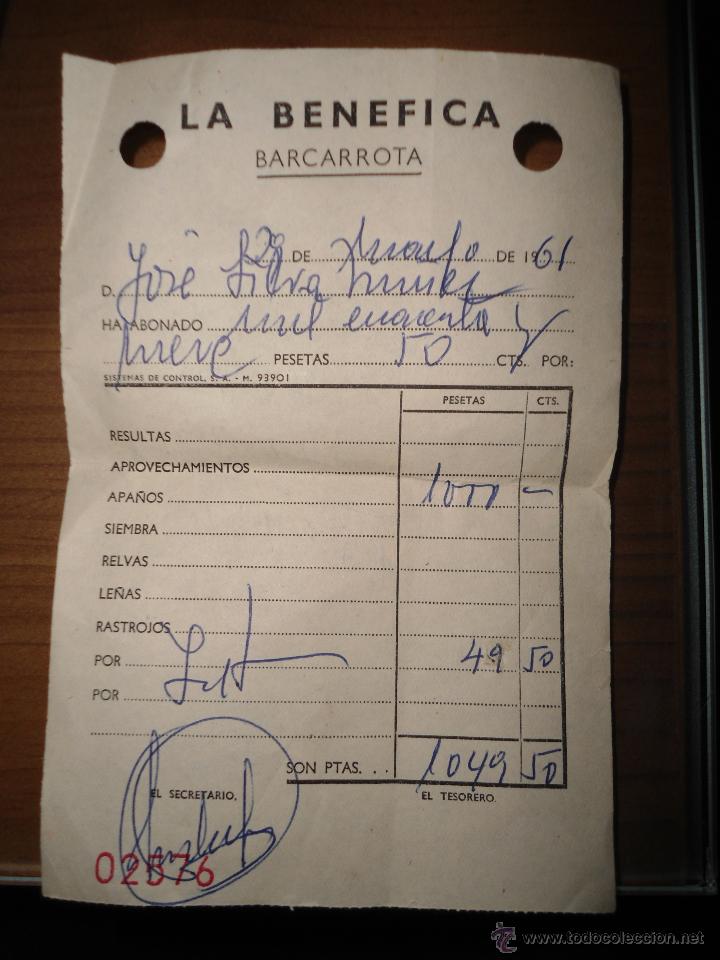 LA BENEFICA
BARCARROTA
29 DE Marzo DE 1961
D. José Silva
HA ABONADO mil cuarenta y
nueve PESETAS 50 CTS. POR:
SISTEMAS DE CONTROL, S. A. - M. 93901
PESETAS CTS.
RESULTAS
APROVECHAMIENTOS
APAÑOS 1000 -
SIEMBRA
RELVAS
LEÑAS
RASTROJOS
POR 49 50
POR
SON PTAS. . . 1049 50
EL SECRETARIO, EL TESORERO.
02576
www.todocoleccion.net